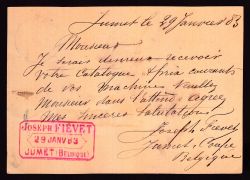 Jumet le 29 Janvier 83
Monsieur
Je serais desireux recevoir
votre Catalogue & prix courants
de vos machines veuillez
Monsieur dans l'attente agréer
mes sincères salutations
JOSEPH FIÉVET
29 JANV 83
JUMET (BELGIQUE)
Joseph Fievet
Jumet,
Belgique